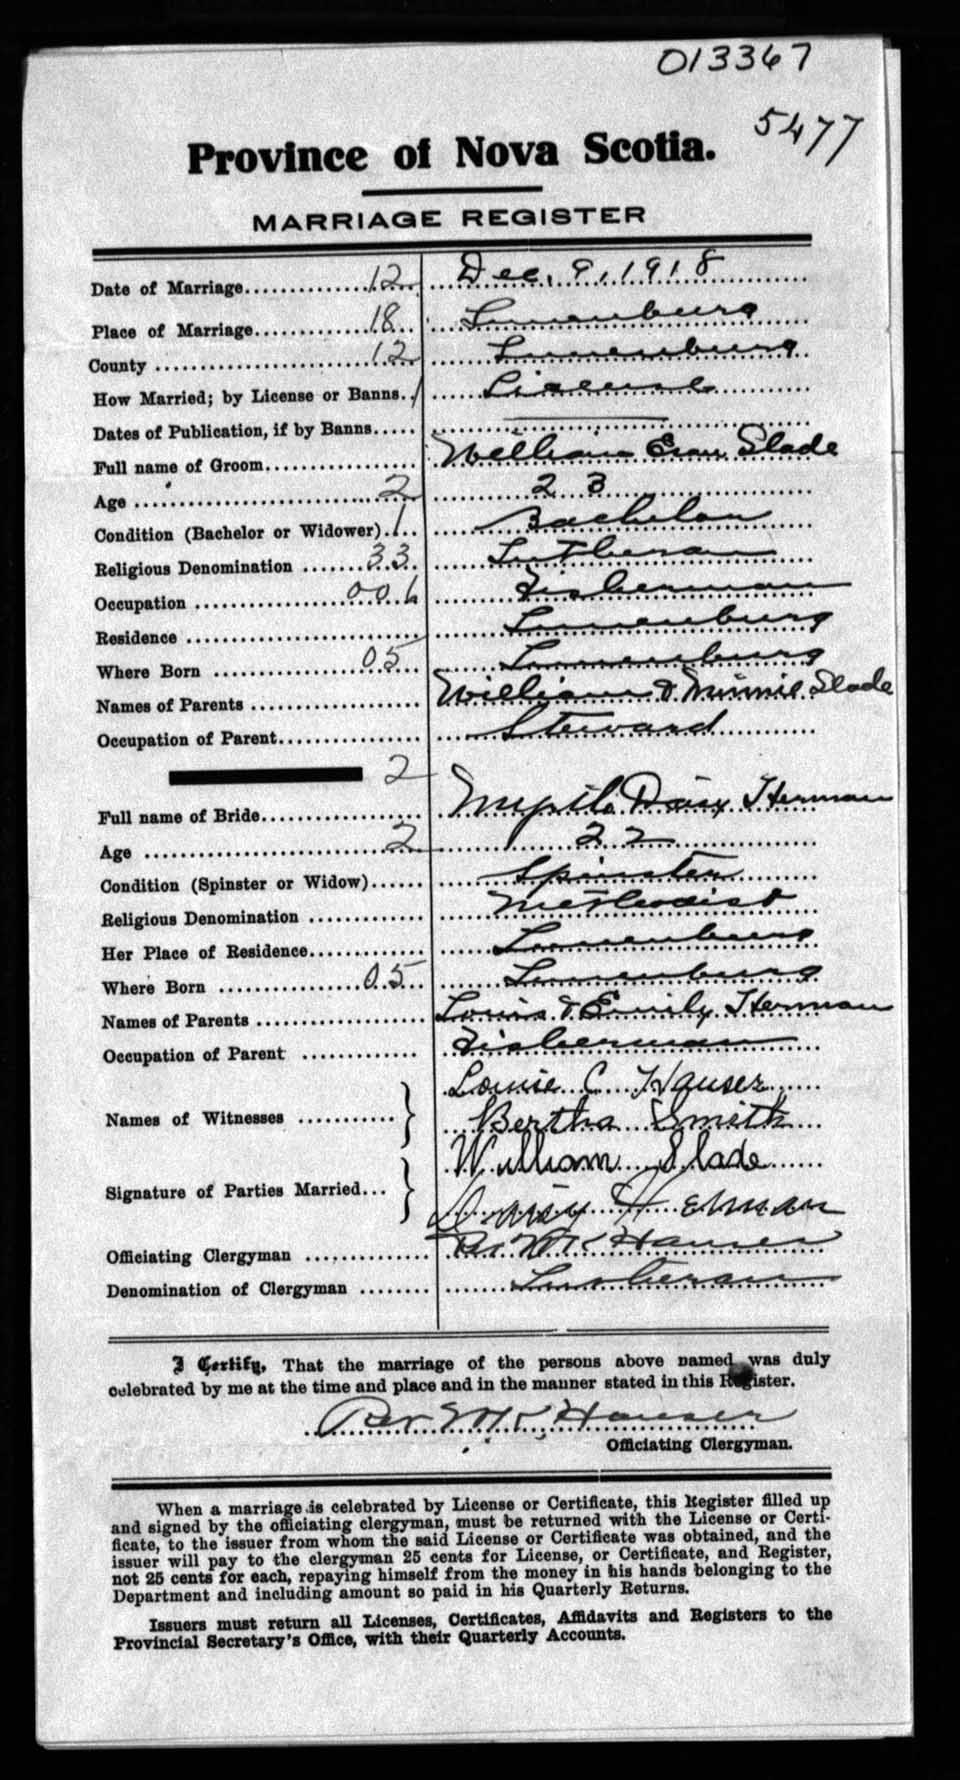 013367
5477
Province of Nova Scotia.
MARRIAGE REGISTER
Date of Marriage 12 Dec. 9, 1918
Place of Marriage 18 Lunenburg
County 12 Lunenburg
How Married; by License or Banns 1 License
Dates of Publication, if by Banns
Full name of Groom William Slade
Age 2 23
Condition (Bachelor or Widower) 1 Bachelor
Religious Denomination 33 Lutheran
Occupation 001 Fisherman
Residence Lunenburg
Where Born 05 Lunenburg
Names of Parents William & Minnie Slade
Occupation of Parent Steward
2
Full name of Bride Daisy Herman
Age 2 22
Condition (Spinster or Widow) Spinster
Religious Denomination Methodist
Her Place of Residence Lunenburg
Where Born 05 Lunenburg
Names of Parents Louis & Emily Herman
Occupation of Parent Fisherman
Names of Witnesses Louise C Hauser
Bertha Smith
Signature of Parties Married William Slade
Daisy Herman
Officiating Clergyman Hauser
Denomination of Clergyman Lutheran
I Certify, That the marriage of the persons above named was duly
celebrated by me at the time and place and in the manner stated in this Register.
Rev. Hauser
Officiating Clergyman.
When a marriage is celebrated by License or Certificate, this Register filled up
and signed by the officiating clergyman, must be returned with the License or Certi-
ficate, to the issuer from whom the said License or Certificate was obtained, and the
issuer will pay to the clergyman 25 cents for License, or Certificate, and Register,
not 25 cents for each, repaying himself from the money in his hands belonging to the
Department and including amount so paid in his Quarterly Returns.
Issuers must return all Licenses, Certificates, Affidavits and Registers to the
Provincial Secretary's Office, with their Quarterly Accounts.